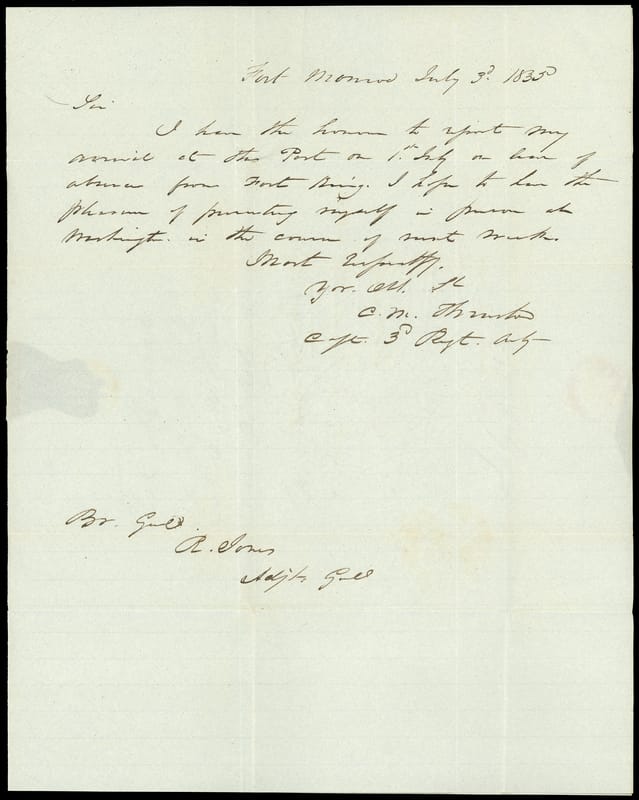 Fort Monroe July 3d. 1835
Sir
I have the honour to report my
arrival at this Post on 1st. July on leave of
absence from Fort King. I hope to have the
pleasure of presenting myself in person at
Washingtn. in the course of next week.
Most respectfly.
Yor. Obt. St
C. M. Thruston
Capt. 3d Regt. Arty
Br. Genl.
R. Jones
Adjt. Genl